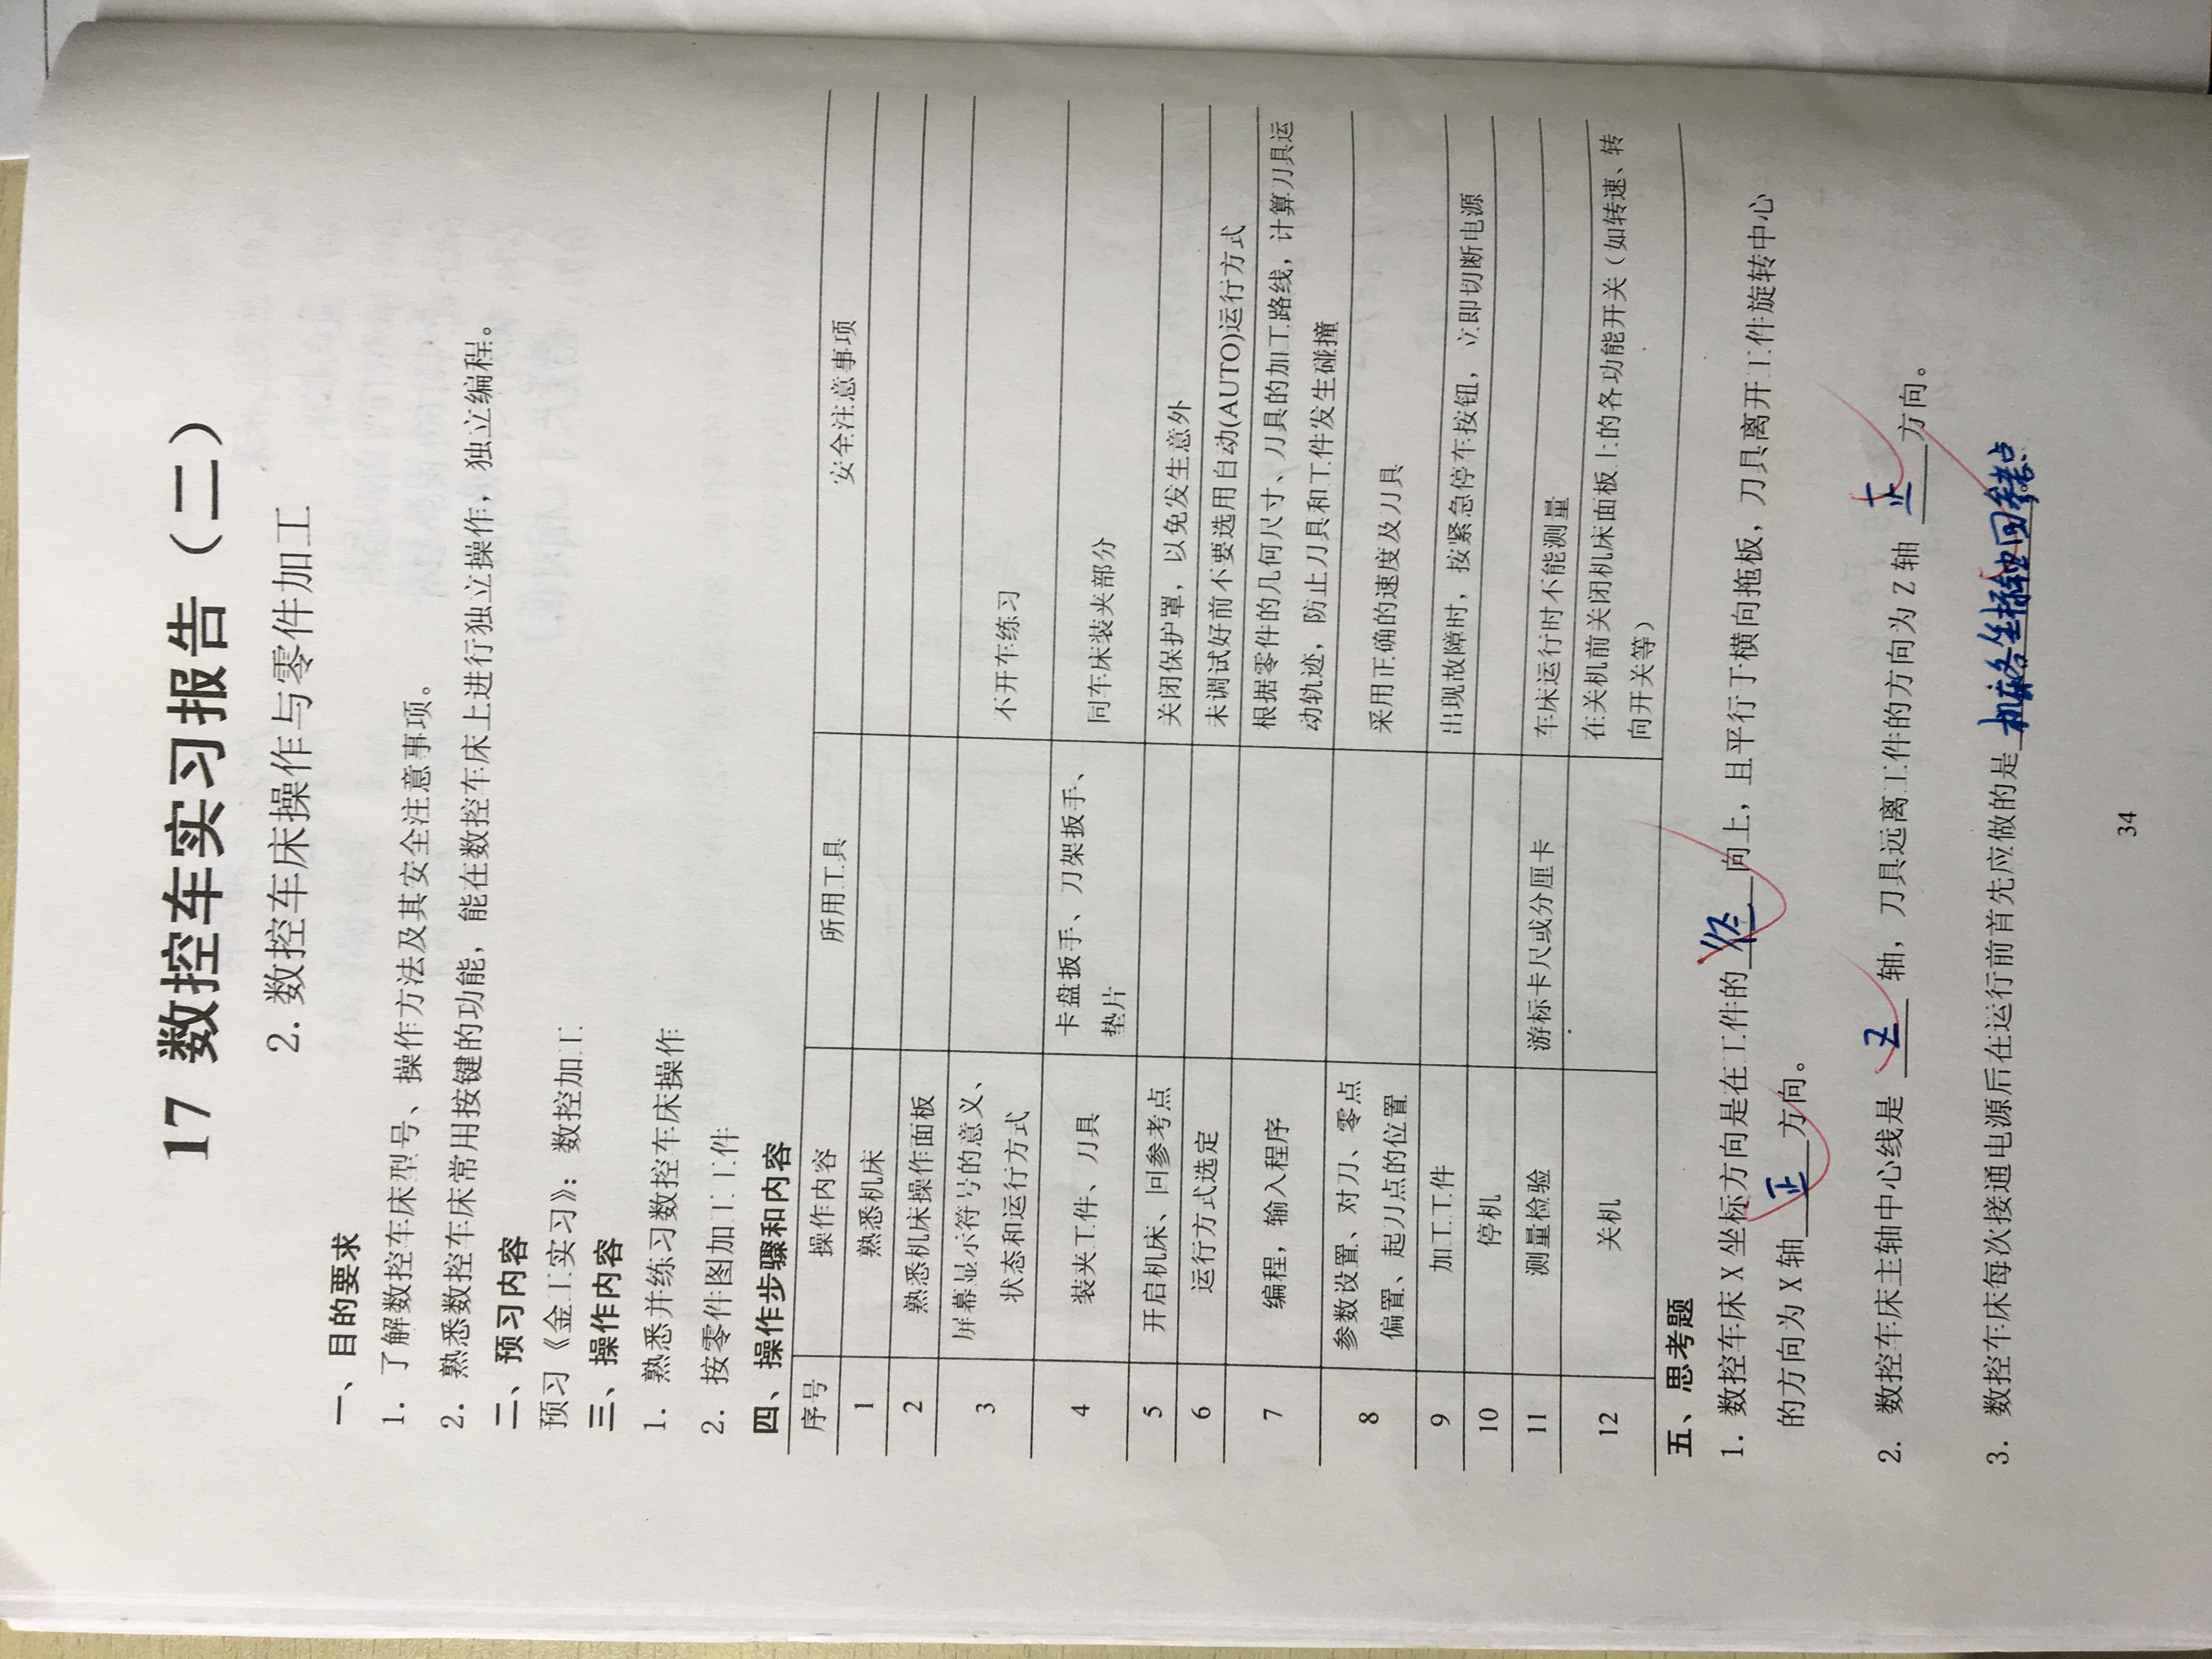 17 数控车实习报告（二）
2. 数控车床操作与零件加工
一、目的要求
1. 了解数控车床型号、操作方法及其安全注意事项。
2. 熟悉数控车床常用按键的功能，能在数控车床上进行独立操作，独立编程。
二、预习内容
预习《金工实习》：数控加工
三、操作内容
1. 熟悉并练习数控车床操作
2. 按零件图加工工件
四、操作步骤和内容
序号 操作内容 所用工具 安全注意事项
1 熟悉机床
2 熟悉机床操作面板
3 屏幕显示符号的意义、
状态和运行方式 不开车练习
4 装夹工件、刀具 卡盘扳手、刀架扳手、
垫片 同车床装夹部分
5 开启机床、回参考点 关闭保护罩，以免发生意外
6 运行方式选定 未调试好前不要选用自动(AUTO)运行方式
7 编程，输入程序 根据零件的几何尺寸、刀具的加工路线，计算刀具运
动轨迹，防止刀具和工件发生碰撞
8 参数设置、对刀、零点
偏置、起刀点的位置 采用正确的速度及刀具
9 加工工件 出现故障时，按紧急停车按钮，立即切断电源
10 停机
11 测量检验 游标卡尺或分厘卡 车床运行时不能测量
12 关机 在关机前关闭机床面板上的各功能开关（如转速、转
向开关等）
五、思考题
1. 数控车床 X 坐标方向是在工件的 径 向上，且平行于横向拖板，刀具离开工件旋转中心
的方向为 X 轴 正 方向。
2. 数控车床主轴中心线是 Z 轴，刀具远离工件的方向为 Z 轴 正 方向。
3. 数控车床每次接通电源后在运行前首先应做的是 机床各坐标轴回参考点
34